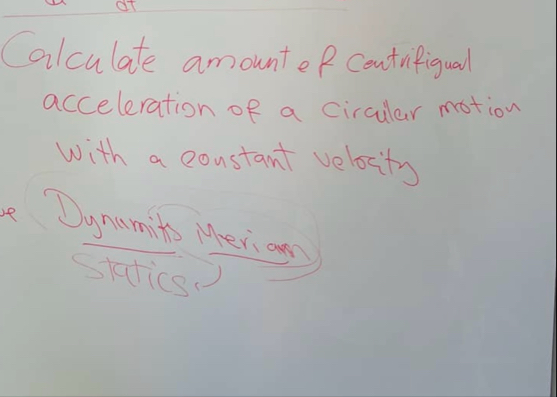 dt
Calculate amount of Centrifigual
acceleration of a circular motion
with a constant velocity
Dynamits Meriam
Statics